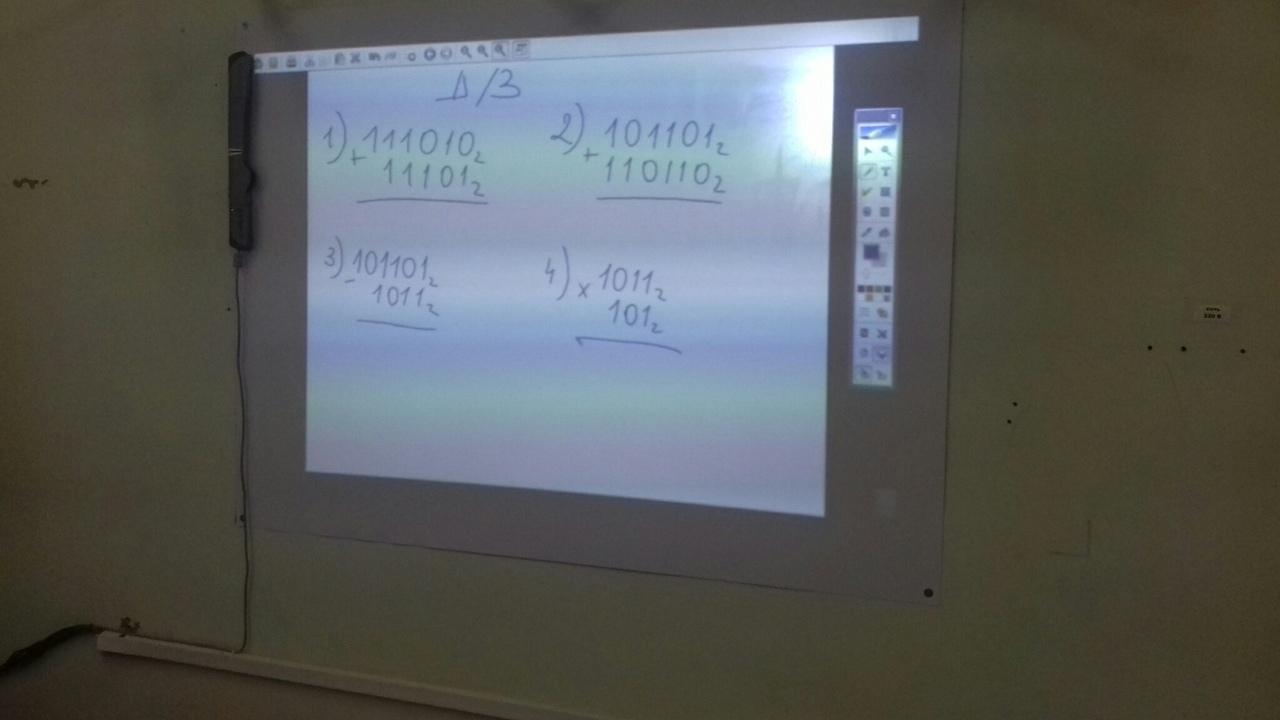 Д/З
1) + 111010₂
11101₂
2) + 101101₂
110110₂
3) - 101101₂
1011₂
4) × 1011₂
101₂
220 В